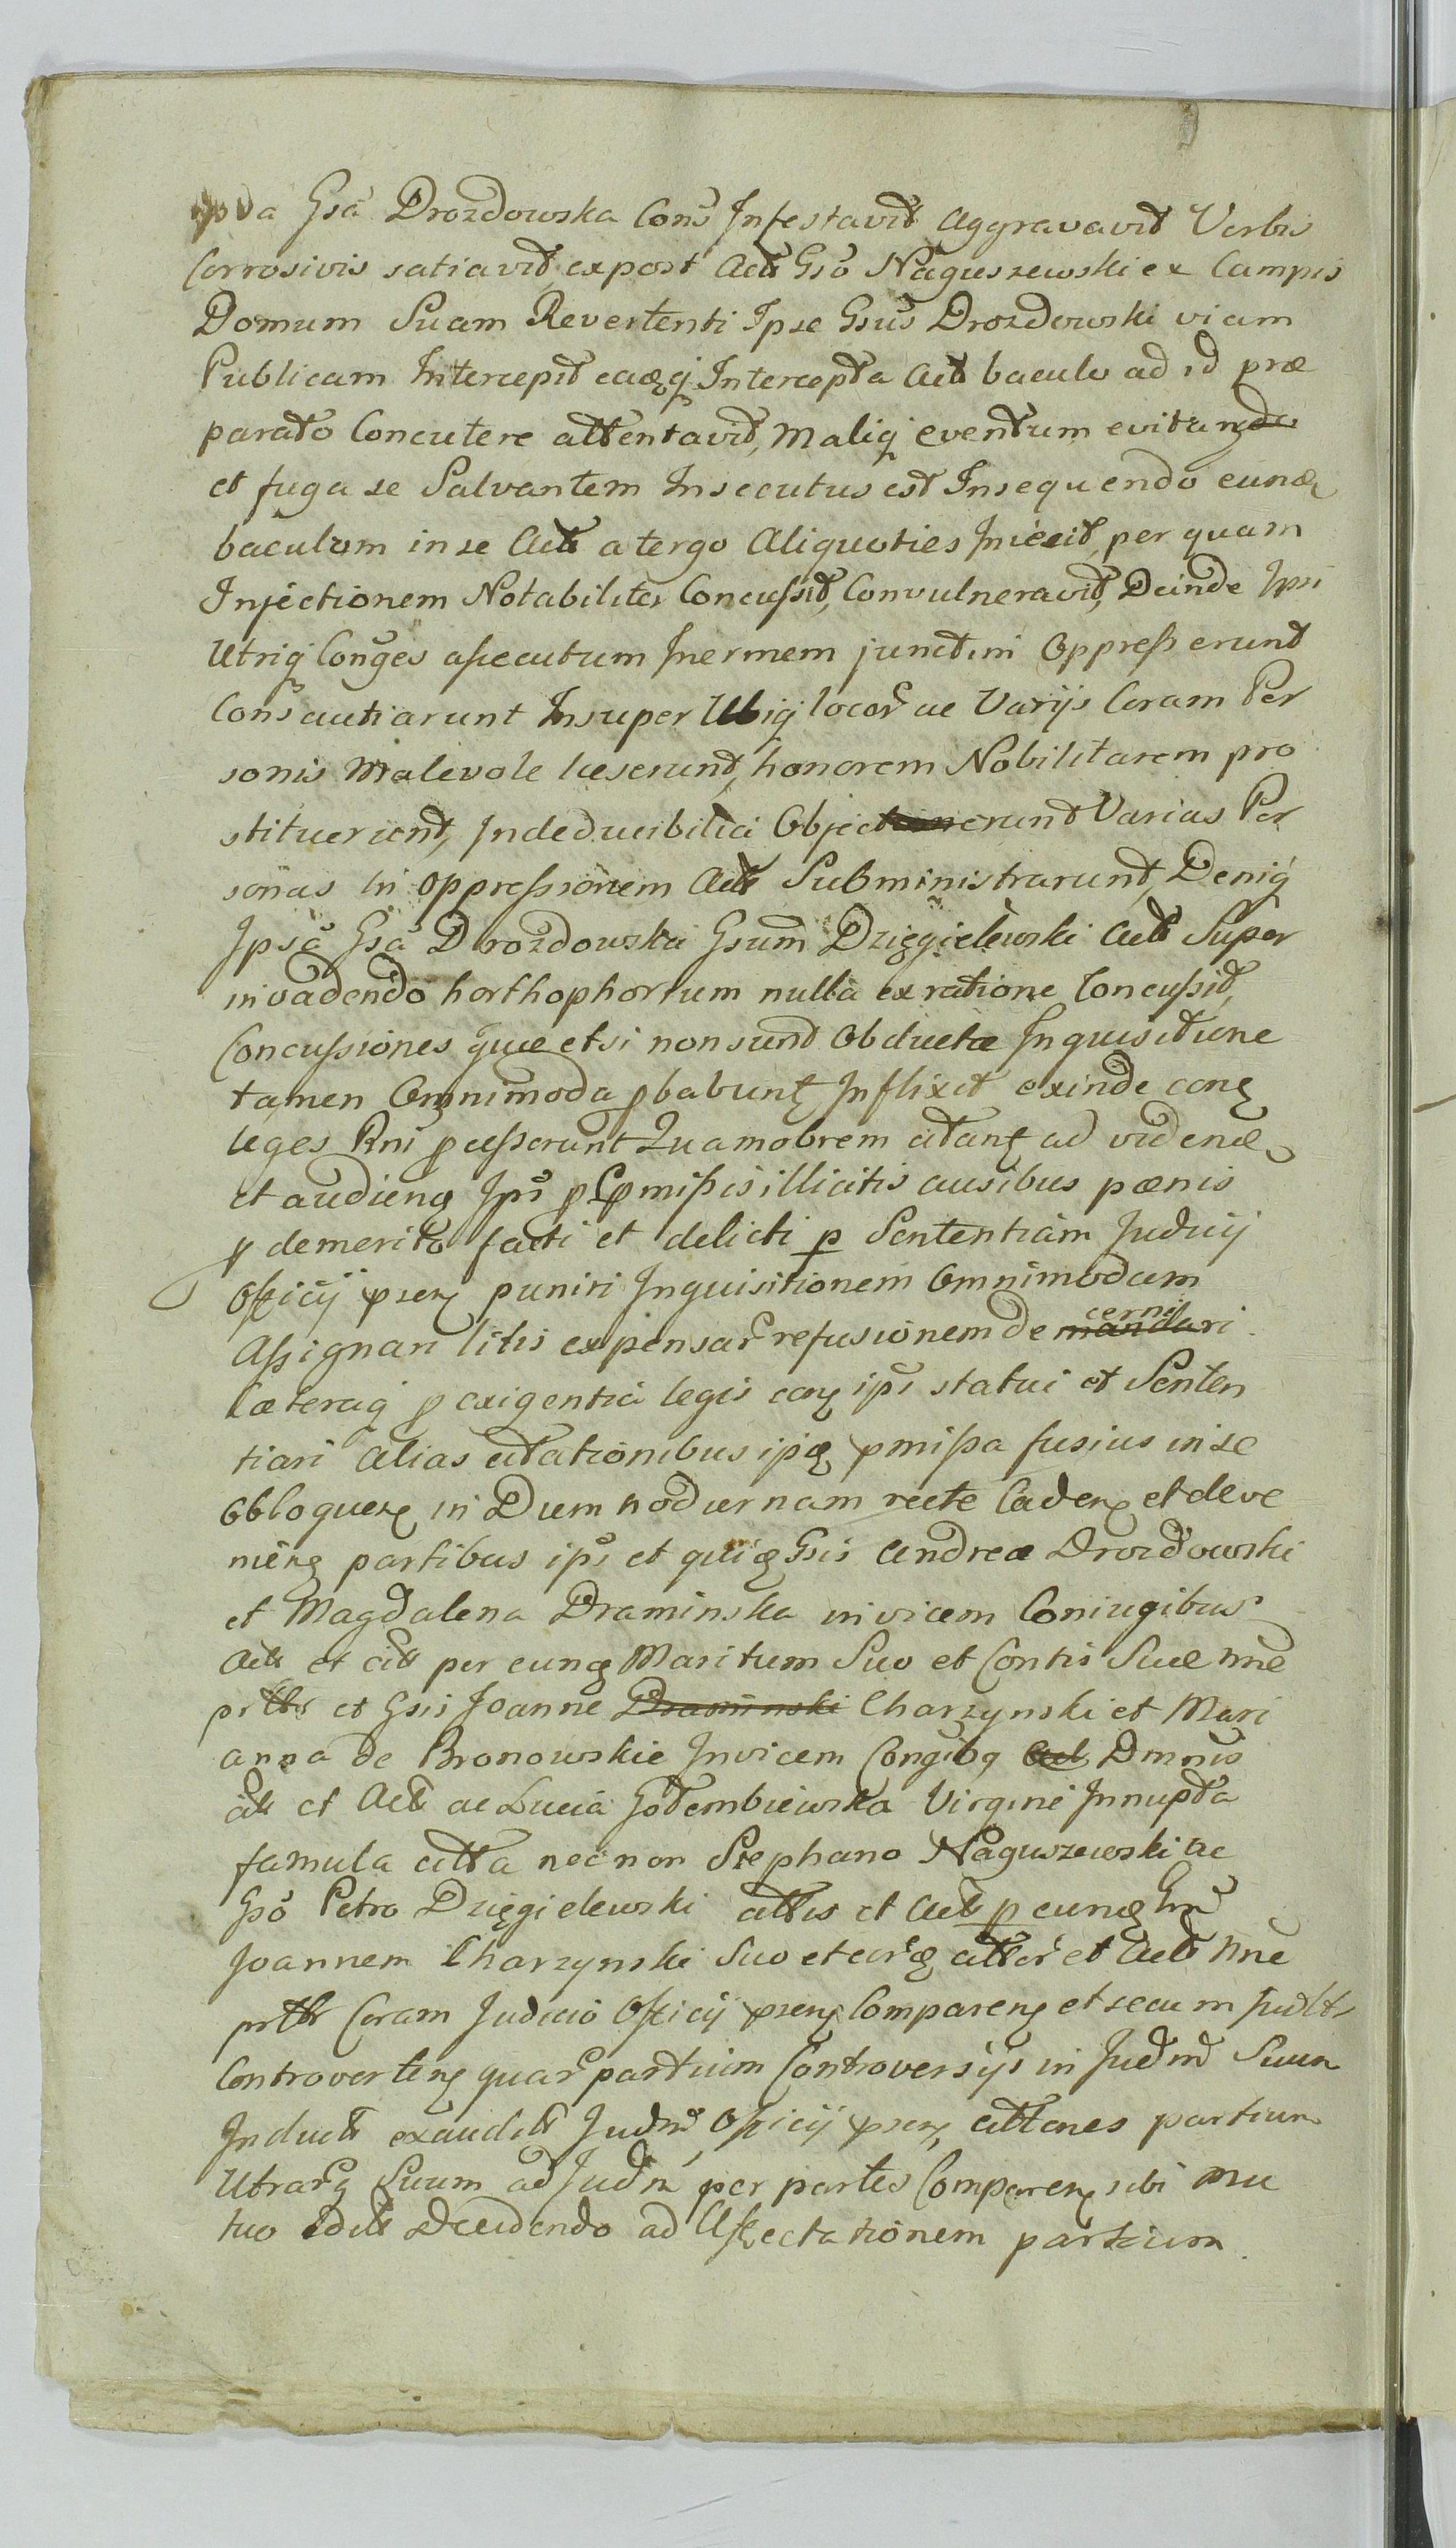 ipsa Gsa Drozdowska Cons Infestavit Aggravavit Verbis
Corrosivis satiavit, expost Actt Gso Naguszewski ex Campis
Domum Suam Revertenti Ipse Gsus Drozdowski viam
Publicam Intercepit eaqq Intercepta Actt baculo ad id præ
parato Concutere attentavit, Maliq eventum evitan
et fuga se Salvantem Insecutus est Insequendo eunq
baculum in se Actt a tergo Aliquoties Iniecit, per quam
Injectionem Notabiliter Concussit, Convulneravit, Deinde Ipsi
Utriq Conges assecutum Inermem junctim Oppresserunt
Consautiarunt Insuper Ubiq locor ac Varijs Coram Per
sonis Malevole læserunt, honorem Nobilitarem pro
stituerunt, Indeducibilia Objecerunt Varias Per
sonas in oppressionem Actt Subministrarunt, Deniq
Ipsa Gsa Drozdowska Gsum Dzięgielewski Actt Super
invadendo horthophortum nulla ex ratione Concussit,
Concussiones quæ etsi non sunt Obductæ Inquisitione
tamen Omnimoda pbabunt Inflixit exinde conq
leges Rni pcesserunt Quamobrem citant ad viden
et audien Ips p pmissis illicitis ausibus pænis
p demerito facti et delicti p Sententiam Judicij
Officij psen puniri Inquisitionem Omnimodam
Assignari litis expensar refusionem decerni
Cæteraq p exigentia legis con ips statui et Senten
tiari Alias citationibus ipq pmissa fusius in se
Obloquen in Diem hodiernam recte Caden et deve
nien partibus ips et quiq Gsis Andrea Drozdowski
et Magdalena Draminska invicem Coniugibus
Actt et citt per eunq Maritum Suo et Contis Suæ nne
prttr et Gsis Joanne Draminski Charzynski et Mari
anna de Bronowskie Invicem Congibq Act Dmnis
citt et Actt ac Lucia Gołembiewska Virgine Innupta
famula citta necnon Stephano Naguszewski ac
Gso Petro Dzięgielewski cittis et Actt p eunq Gm
Joannem Charzynski Suo et eorq cittor et Actt nne
prttr Coram Judicio Officij psen Comparen et secum Judltr
Controverten quar partium Controversijs in Judm Suum
Inductt exauditt Judm Officij psen cittones partium
Utrarq Suum ad Judm per partes Comparen sibi mu
tuo editt Decidendo ad Affectationem partium